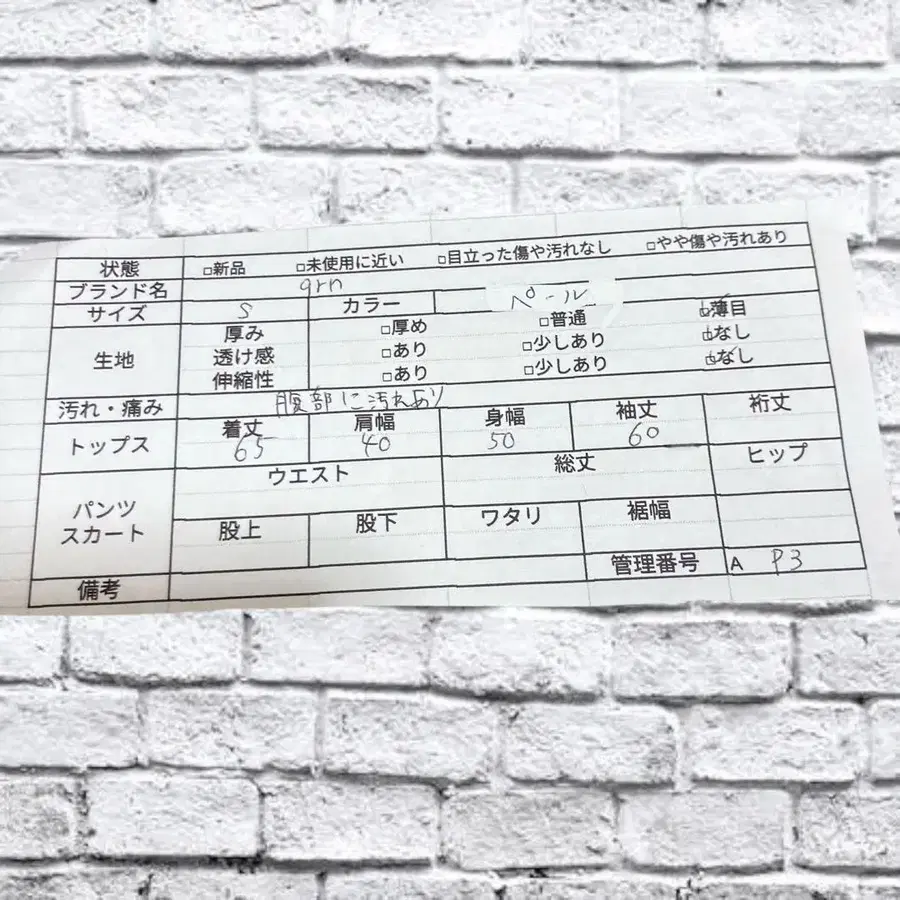 状態 □新品 □未使用に近い □目立った傷や汚れなし □やや傷や汚れあり
ブランド名 grn
サイズ S カラー ペール
生地 厚み □厚め □普通 ☑薄目
透け感 □あり □少しあり ☑なし
伸縮性 □あり □少しあり ☑なし
汚れ・痛み 腹部に汚れあり
トップス 着丈 肩幅 身幅 袖丈 裄丈
65 40 50 60
パンツ スカート ウエスト 総丈 ヒップ
股上 股下 ワタリ 裾幅
備考 管理番号 A P3